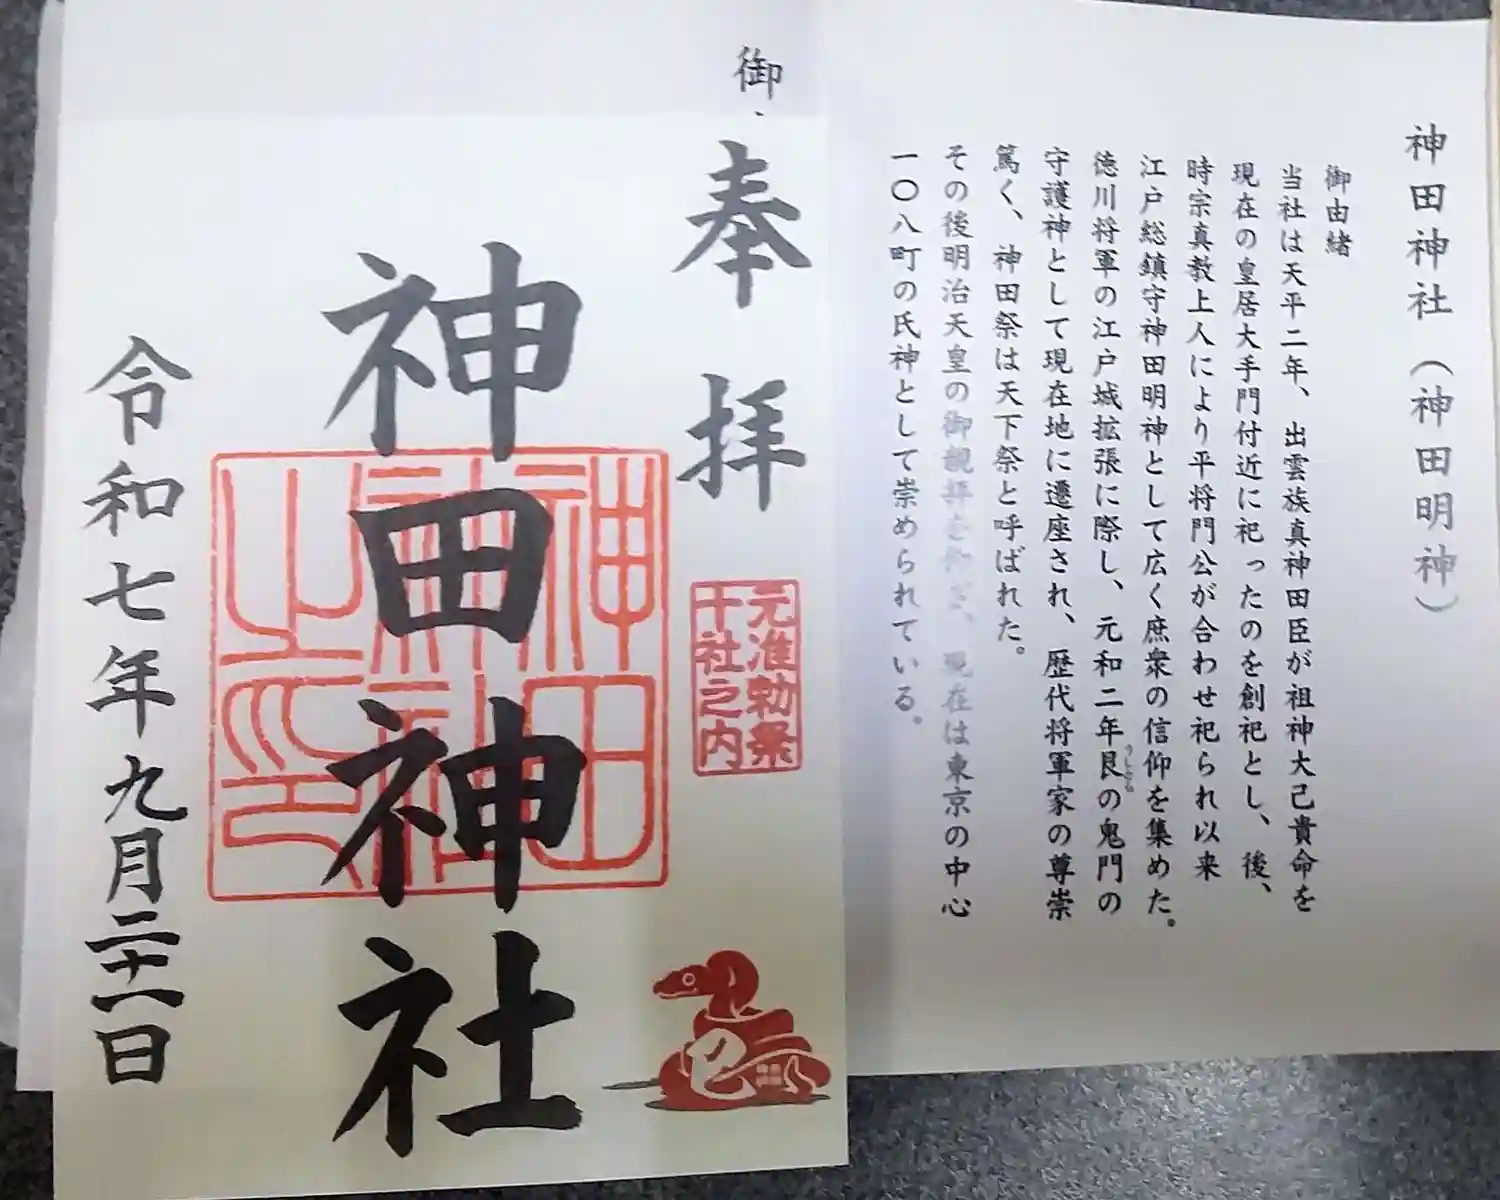 神田神社（神田明神）
御由緒
当社は天平二年、出雲族真神田臣が祖神大己貴命を
現在の皇居大手門付近に祀ったのを創祀とし、後、
時宗真教上人により平将門公が合わせ祀られ以来
江戸総鎮守神田明神として広く庶衆の信仰を集めた。
徳川将軍の江戸城拡張に際し、元和二年艮の鬼門の
うしとら
守護神として現在地に遷座され、歴代将軍家の尊崇
篤く、神田祭は天下祭と呼ばれた。
その後明治天皇の御親拝を仰ぎ、現在は東京の中心
一〇八町の氏神として崇められている。
御
奉拝
元准勅祭
十社之内
神田神社
神田神社之印
令和七年九月二十一日
巳